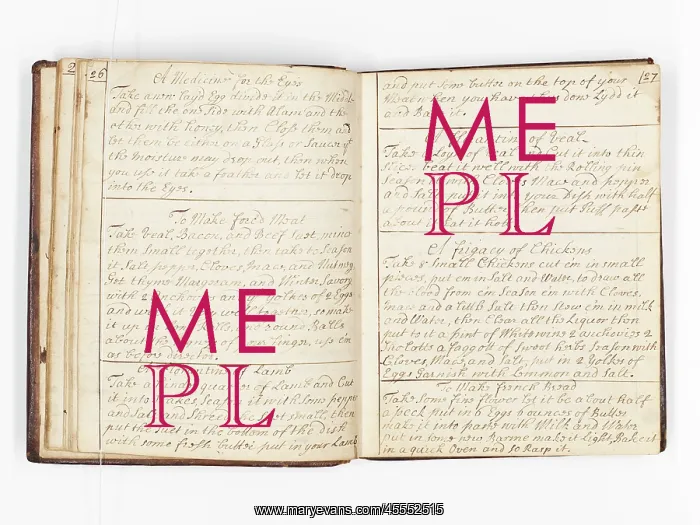 2
26
A Medicine for the Eyes
Take a new layd Egg divide it in the Middle
and fill the one Side with Alam and the
other with honey, then Close them and
let them be either on a Glass or Saucer yt
the Moisture may drop out, then when
you use it take a feather and let it drop
into the Eyes.
To Make forc'd Meat
Take Veal, Bacon, and Beef Suet, mince
them Small together, then take to Season
it Salt pepper, Cloves, Mace, and Nutmeg
Get thyme Marjoram, and Winter Savory
with 2 Anchovies and Yolkes of 2 Eggs
and it up well together, so make
it up Balls
about the of finger, use em
as before
of Lamb
Take a hind quarter of Lamb and Cut
it into Season it with Some pepper
and Salt and Shred the Suet small, then
put the Suet in the bottom of the dish
with some fresh Butter put in your Lamb
27
and put Some butter on the top of your
when you have done Lydd it
and Bake it.
of Veal
Take a Loyn of Veal and Cut it into thin
Slices beat it well with the Rolling pin
Cloves Mace and pepper
and Salt put it in your Dish with half
a pound of Butter then put Puff paste
about it hot
A frigacy of Chickens
Take 2 Small Chickens cut em in small
pieces, put em in Salt and Water, to draw all
the blood from em Season em with Cloves,
mace and a little Salt then Stew em in milk
and Water, then Clear all the Liquor then
put in a pint of White wine 2 anchovies 2
Shelots a faggott of Sweet herbs Season with
Cloves, Mace, and Salt, put in 2 Yolkes of
Eggs Garnish with Lemmon and Salt.
To Make french Bread
Take Some fine flower let it be about half
a peck put in 6 Eggs ounces of Butter
make it into paste with Milk and Water
put in some new Barme make it light, Bake it
in a quick Oven and so Rasp it.
ME
PL
ME
PL
www.maryevans.com/45552515